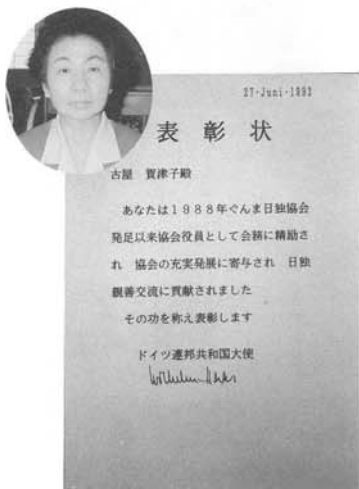 27·Juni·1993
表彰状
古屋 賀津子殿
あなたは1988年ぐんま日独協会
発足以来協会役員として会務に精励さ
れ 協会の充実発展に寄与され 日独
親善交流に貢献されました
その功を称え表彰します
ドイツ連邦共和国大使